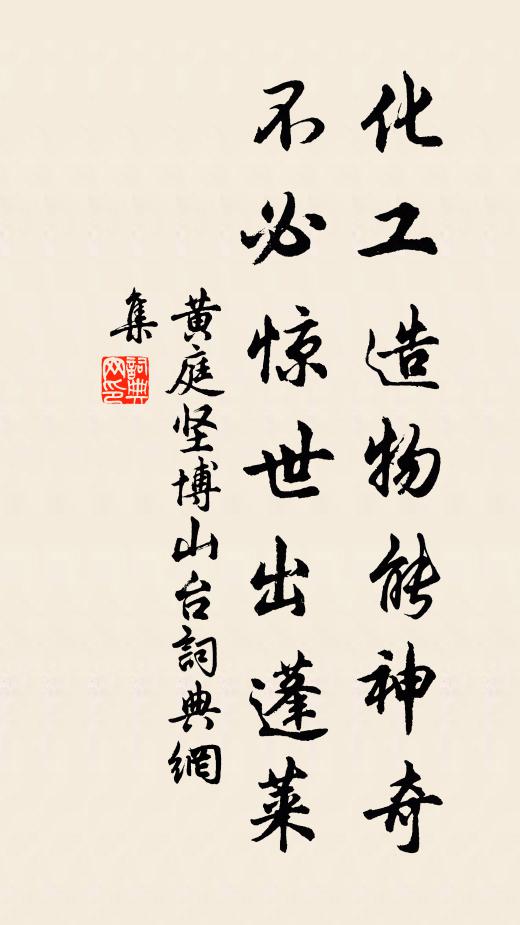 化工造物能神奇
不必惊世出蓬莱
黄庭坚博山台詞典網
集
詞典网印